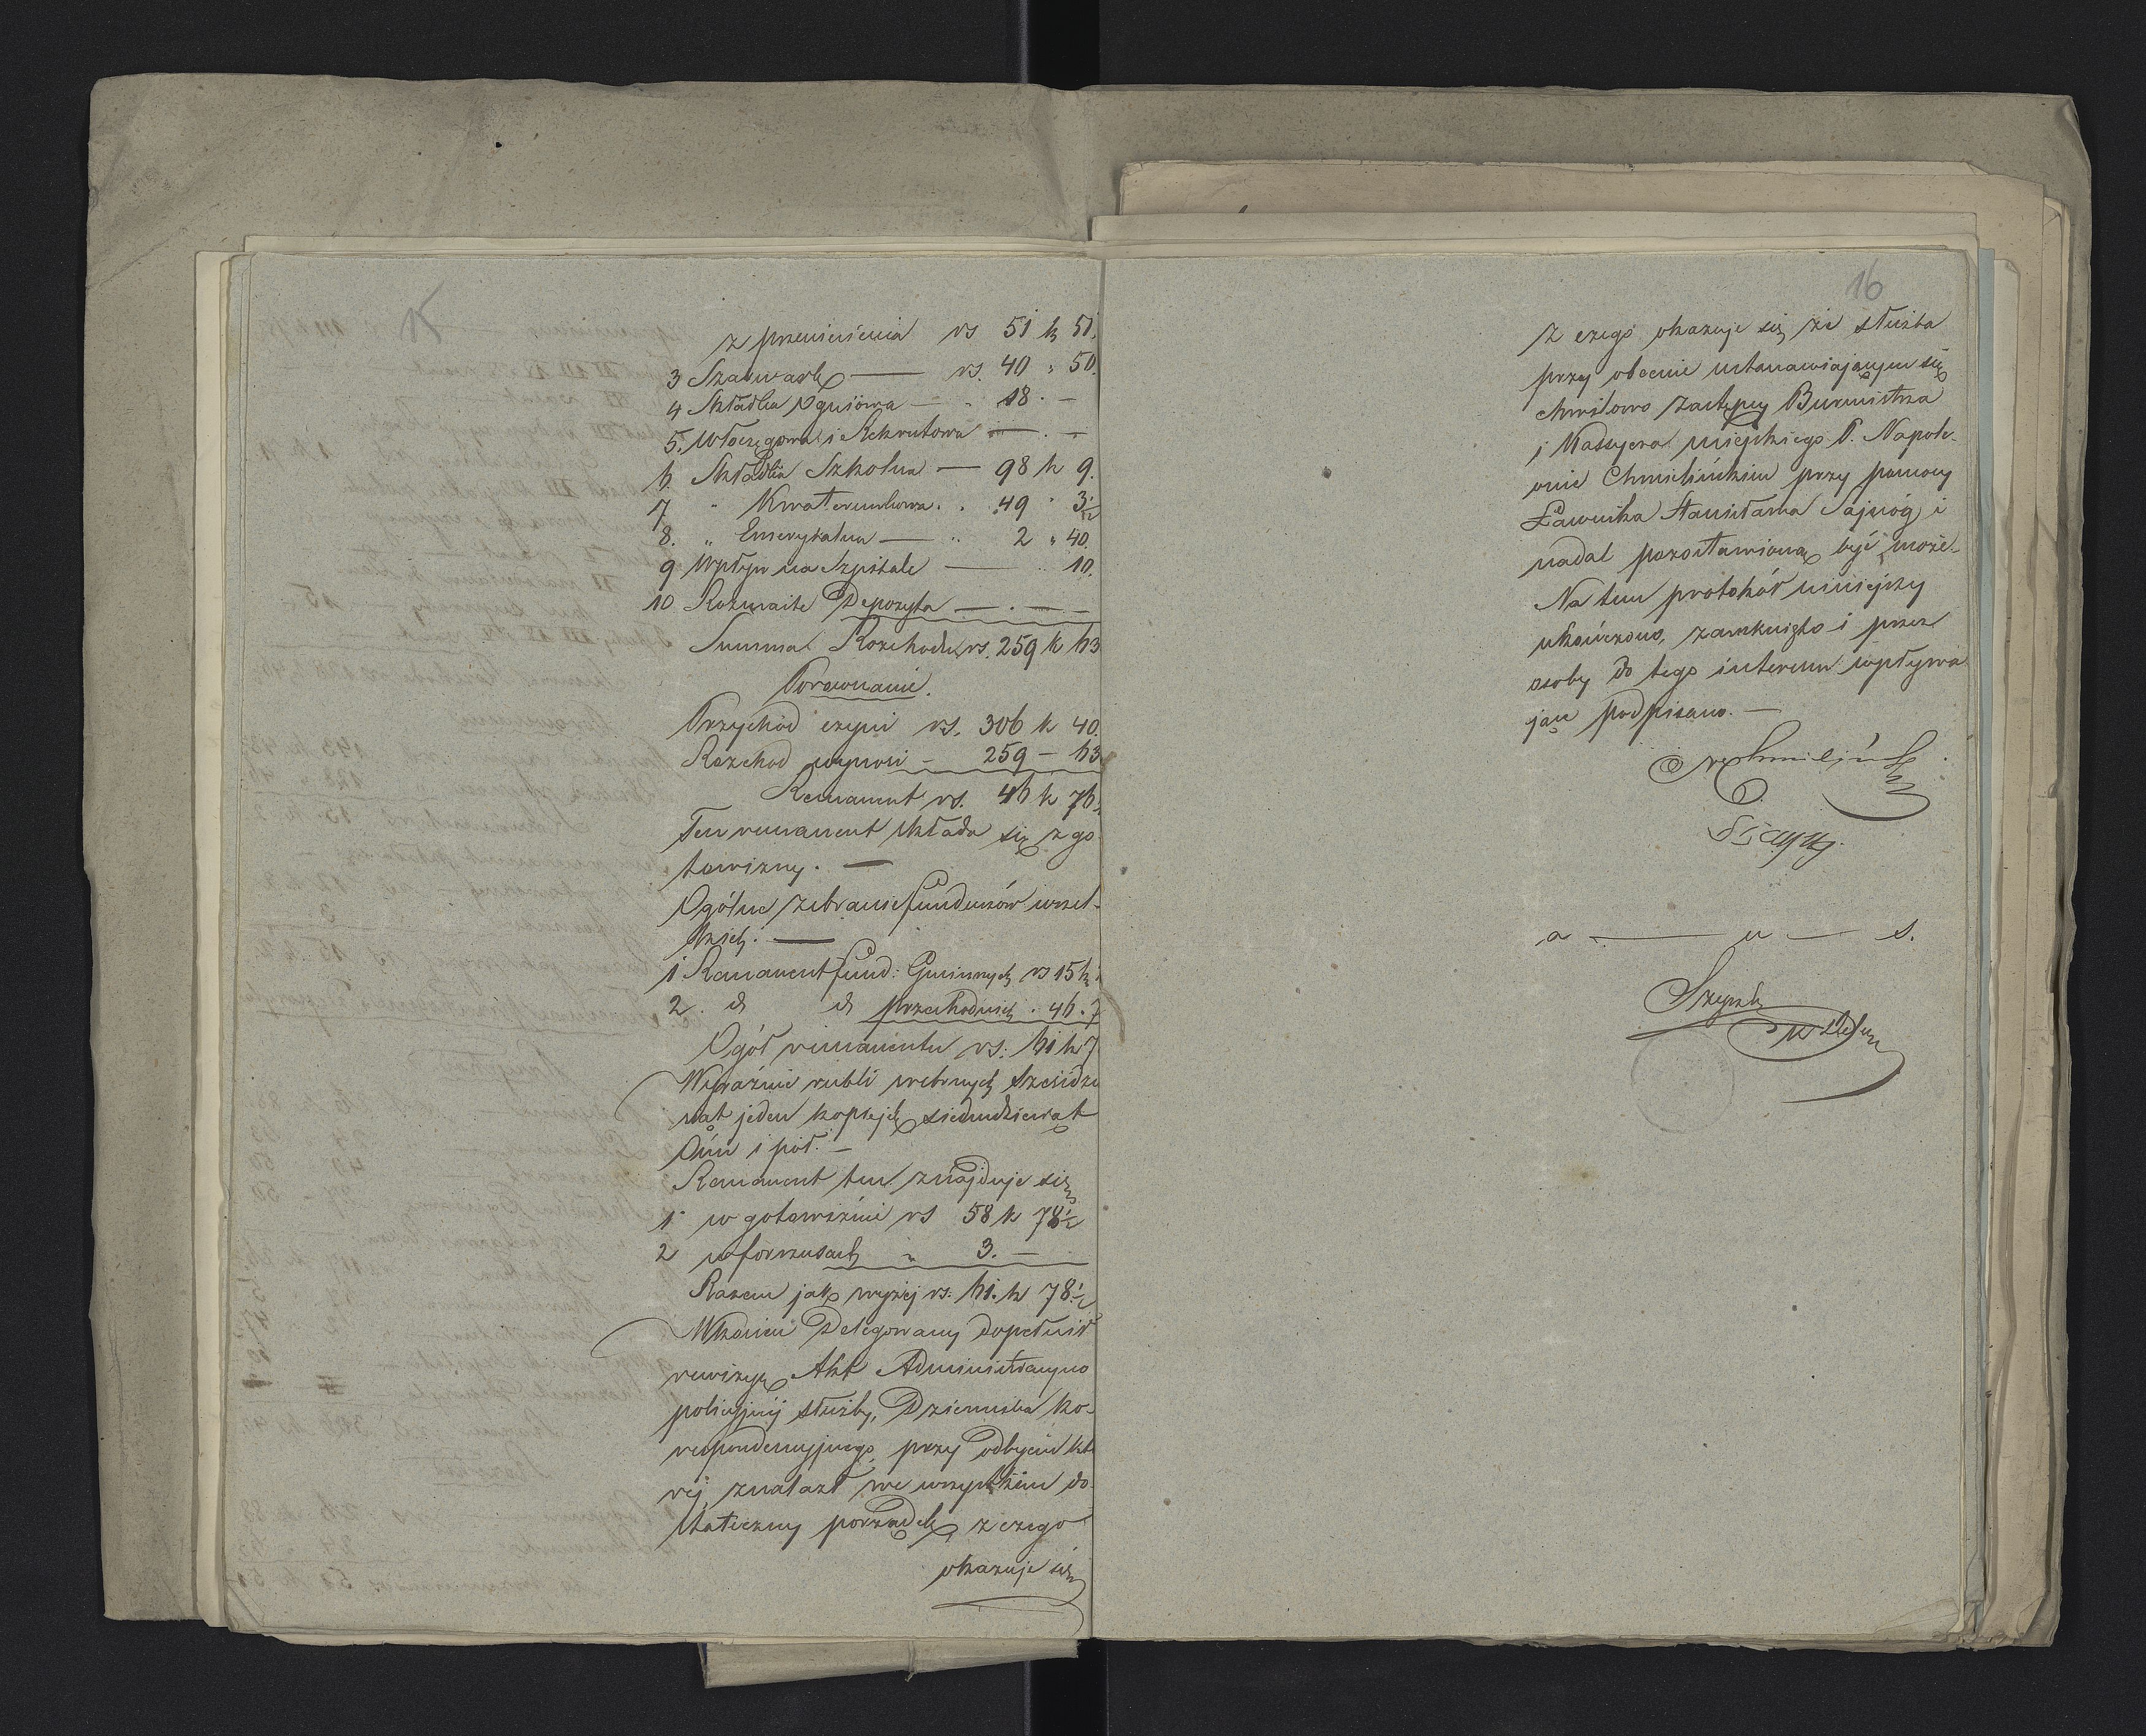 z przeniesienia rs 51 k 51.
3 Szarwark — rs. 40 " 50.
4 Składka Ogniowa — " 18. —
5. Włóczęgowa i Rekrutowa — . —
6. Składka Szkolna — 98 k 9.
7 " Kwaterunkowa . . 49 " 3½
8. " Emerytalna — " 2 " 40.
9 Wpływ na Szpitale — " 10.
10 Rozmaite Depozyta — . — —
Summa Rozchodu rs. 259 k 63
Porównanie.
Przychód czyni rs. 306 k 40.
Rozchod wynosi — 259 — 63
Remanent rs. 46 k 76
Ten remanent składa się z go
towizny. —
Ogólne zebranie funduszów wszel-
kich. —
1 Remanent fund: Gminnych rs 15 k
2. d d przechodnich . 46. 7
Ogół remanentu rs: 61 k 7
Wyraźnie rubli srebrnych sześćdzie
siąt jeden kopiejek siedmdziesiąt
ośm i pół. —
Remanent ten znajduje się
1 w gotowiźnie rs 58 k 78½
2 w forszusach " 3. —
Razem jak wyżej rs. 61. k 78½
Wkońcu Delegowany dopełnił
rewizyę Akt Administracyjno
policyjnéj służby, Dziennika ko-
respondencyjnego, przy odbyciu któ
réj, znalazł we wszystkiem do
stateczny porządek z czego
okazuje się
15
16
Z czego okazuje się że służba
przy obecnie ustanawiającym się
chwilowo zastępcy Burmistrza
i Kassyera miejskiego P. Napole-
onie Chmielińskim przy pomocy
Ławnika Stanisława Sajnóg i
nadal pozostawioną być może.
Na tem protokół niniejszy
ukończono, zamknięto i przez
osoby do tego interesu wpływa
jące podpisano. —
N Chmieliński
a — u — s.